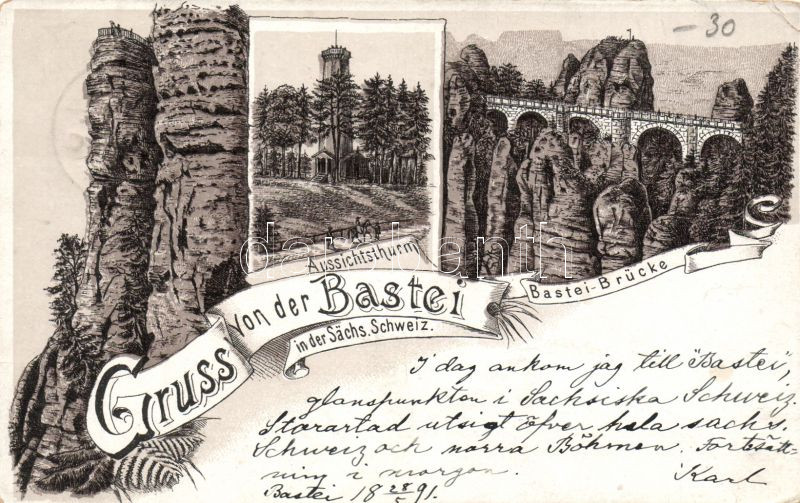 -30
Aussichtsthurm
Bastei-Brücke
Gruss von der Bastei
in der Sächs. Schweiz.
darabanth
I dag ankom jag till "Bastei",
glanspunkten i Sachsiska Schweiz.
Storartad utsigt öfver hela sachs.
Schweiz och norra Böhmen. Fortsätt-
ning i morgon. Karl
Bastei 18 28/5 91.